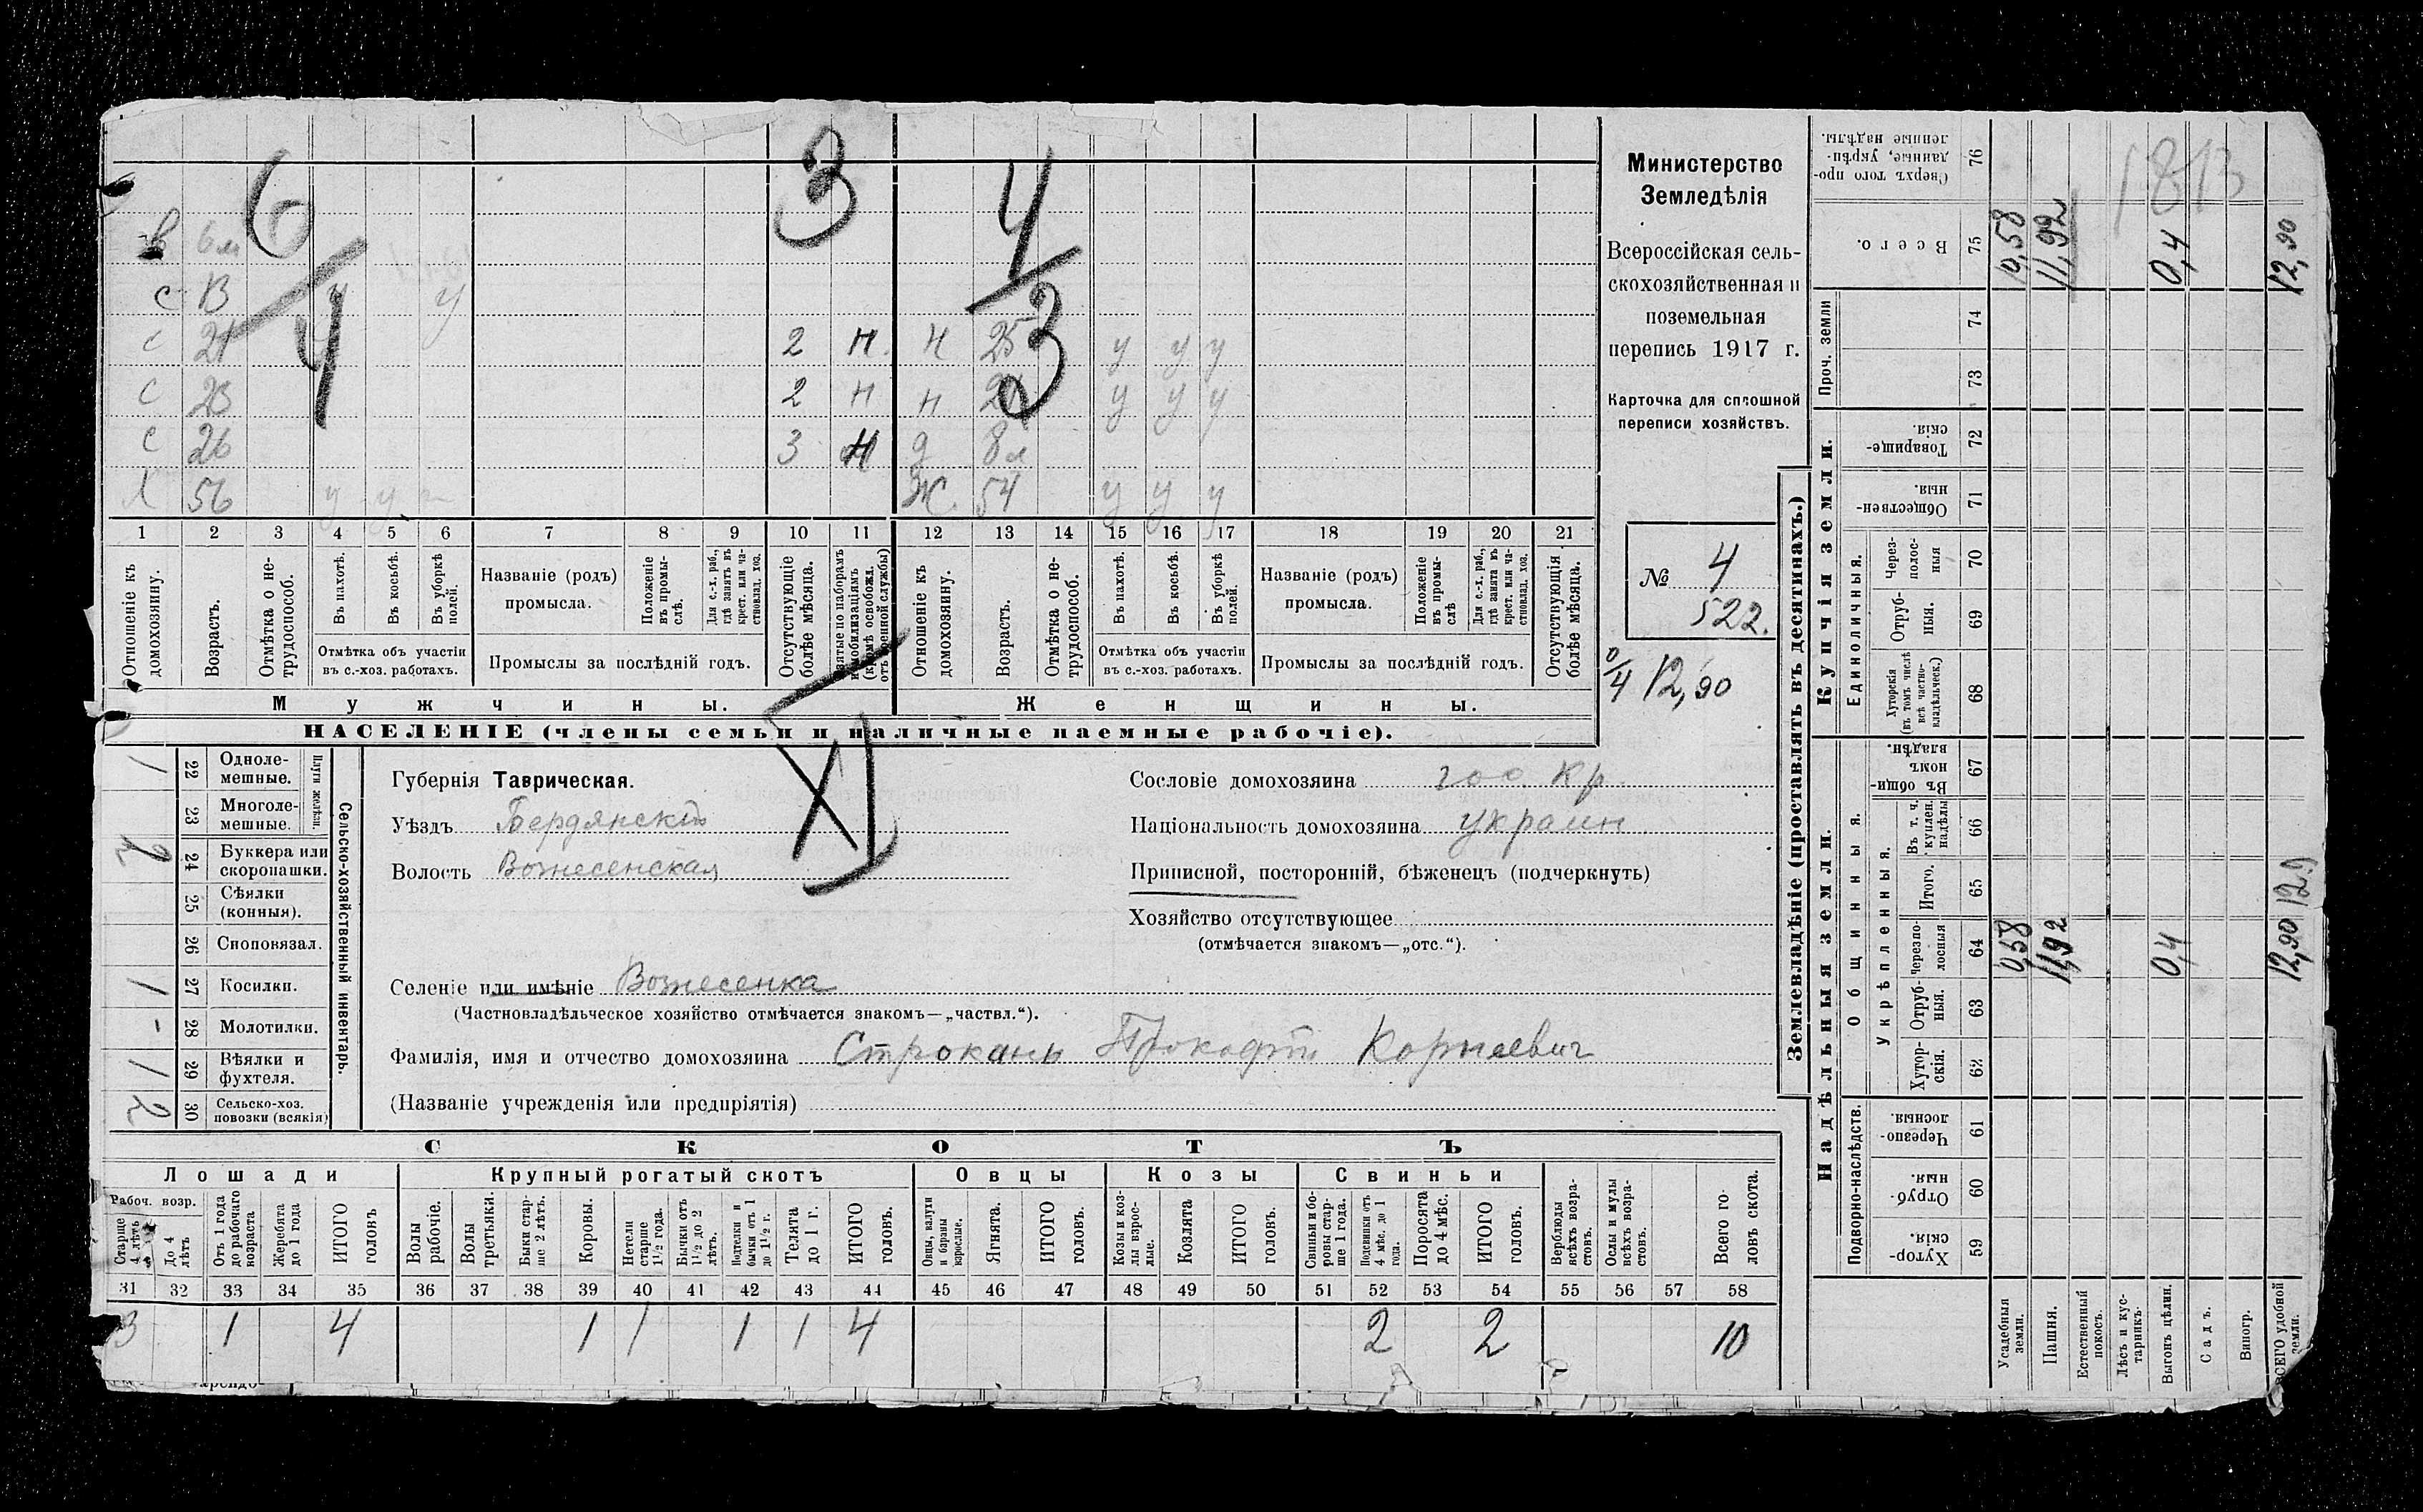 6
3
4
в 6 м
с 13 у у
4
3
с 21 2 н н 25 у у у
с 23 2 н н 21 у у у
с 26 3 н д 8 л
Х 56 у у Ж. 54 у у у
1 2 3 4 5 6 7 8 9 10 11 12 13 14 15 16 17 18 19 20 21
Отношеніе къ домохозяину.
Возрастъ.
Отмѣтка о нетрудоспособ.
Въ пахотѣ.
Въ косьбѣ.
Въ уборкѣ полей.
Отмѣтка объ участіи въ с.-хоз. работахъ.
Названіе (родъ) промысла.
Положеніе въ промыслѣ.
Для с.-х. раб., гдѣ занятъ въ крест. или частновлад. хоз.
Промыслы за послѣдній годъ.
Отсутствующіе болѣе мѣсяца.
Взятые по наборамъ и мобилизаціямъ (кромѣ освобожд. отъ военной службы)
Отношеніе къ домохозяину.
Возрастъ.
Отмѣтка о нетрудоспособ.
Въ пахотѣ.
Въ косьбѣ.
Въ уборкѣ полей.
Отмѣтка объ участіи въ с.-хоз. работахъ.
Названіе (родъ) промысла.
Положеніе въ промыслѣ
Для с.-х. раб., гдѣ занята въ крест. или частновлад. хоз.
Промыслы за послѣдній годъ.
Отсутствующія болѣе мѣсяца.
Мужчины.
Женщины.
НАСЕЛЕНІЕ (члены семьи и наличные наемные рабочіе).
Министерство
Земледѣлія
Всероссійская сель-
скохозяйственная и
поземельная
перепись 1917 г.
Карточка для сплошной
переписи хозяйствъ.
№ 4
522.
0/4 12,90
XI
Сельско-хозяйственный инвентарь.
Плуги желѣзн.
1 22 Одноле-мешные.
23 Многоле-мешные.
2 24 Буккера или скоропашки.
25 Сѣялки (конныя).
26 Сноповязал.
1 27 Косилки.
- 28 Молотилки.
1 29 Вѣялки и фухтеля.
2 30 Сельско-хоз. повозки (всякія)
Губернія Таврическая.
Уѣздъ Бердянскій
Волость Вознесенская
Селеніе или имѣніе Вознесенка
(Частновладѣльческое хозяйство отмѣчается знакомъ—„частвл.“).
Фамилія, имя и отчество домохозяина Строкань Прокофій Корнеевич
(Названіе учрежденія или предпріятія)
Сословіе домохозяина гос. кр.
Національность домохозяина украин
Приписной, посторонній, бѣженецъ (подчеркнуть)
Хозяйство отсутствующее
(отмѣчается знакомъ—„отс.“).
СКОТЪ
Лошади
Крупный рогатый скотъ
Овцы
Козы
Свиньи
Рабоч. возр.
Старше 4 лѣтъ
До 4 лѣтъ
Отъ 1 года до рабочаго возраста
Жеребята до 1 года
ИТОГО головъ
Волы рабочіе.
Волы третьяки.
Быки старше 2 лѣтъ.
Коровы.
Нетели старше 1½ года.
Бычки отъ 1½ до 2 лѣтъ.
Подтелки и бычки отъ 1 до 1½ г.
Телята до 1 г.
ИТОГО головъ.
Овцы, валухи и бараны взрослые.
Ягнята.
ИТОГО головъ.
Козы и козлы взрослые.
Козлята
ИТОГО головъ.
Свиньи и боровы старше 1 года.
Подсвинки отъ 4 мѣс. до 1 года.
Поросята до 4 мѣс.
ИТОГО головъ.
Верблюды всѣхъ возрастовъ.
Ослы и мулы всѣхъ возрастовъ.
Всего головъ скота.
31 32 33 34 35 36 37 38 39 40 41 42 43 44 45 46 47 48 49 50 51 52 53 54 55 56 57 58
3 1 4 1 1 1 1 4 2 2 10
Землевладѣніе (проставлять въ десятинахъ.)
Надѣльныя земли.
Купчія земли.
Проч. земли
Подворно-наслѣдств.
Общинныя.
Укрѣпленныя.
Единоличныя.
Сверхъ того проданные, укрѣпленные надѣлы. 76
Всего. 75
74
73
Товарищескія. 72
Общественныя. 71
Черезполосныя 70
Отрубныя. 69
Хуторскія (въ томъ числѣ всѣ частновладѣльческ.) 68
Въ общинномъ владѣн. 67
Въ т. ч. куплен. надѣлы 66
Итого. 65
Черезполосныя 64
Отрубныя. 63
Хуторскія. 62
Черезполосныя 61
Отрубныя. 60
Хуторскія. 59
Усадебныя земли. 0,58 0,58
Пашня. 11,92 11,92
Естественный покосъ.
Лѣсъ и кустарникъ.
Выгонъ цѣлин. 0,4 0,4
Садъ.
Виногр.
ВСЕГО удобной земли. 12,90 12,90
1813